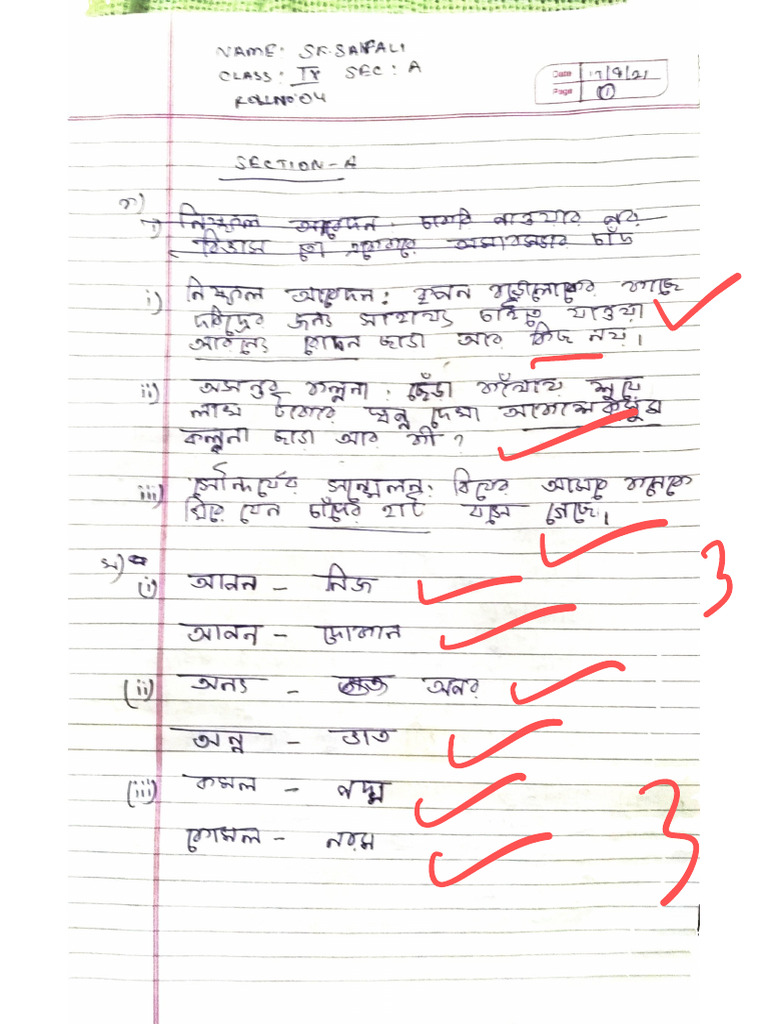 NAME: SK. SAIFALI
CLASS: IX SEC: A
ROLL NO 04
Date 17/9/21
Page 1
SECTION - A
ক)
i) নিষ্ফল আবেদন চাকরি পাওয়ার পর
বিভাস তো একেবারে অমাবস্যার চাঁদ
i) নিষ্ফল আবেদন: কৃপন বড়োলোকের কাছে
দরিদ্রের জন্য সাহায্য চাইতে যাওয়া
অরণ্যে রোদন ছাড়া আর কিছু নয়।
ii) অসম্ভব কল্পনা: ছেঁড়া কাঁথায় শুয়ে
লাখ টাকার স্বপ্ন দেখা আকাশকুসুম
কল্পনা ছাড়া আর কী?
iii) সৌন্দর্যের সম্মেলন: বিয়ের আসরে কনেকে
ঘিরে যেন চাঁদের হাট বসে গেছে।
খ)
(i) আপন - নিজ
আপন - দোকান
(ii) অন্য - অপর
অন্ন - ভাত
(iii) কমল - পদ্ম
কোমল - নরম
3
3